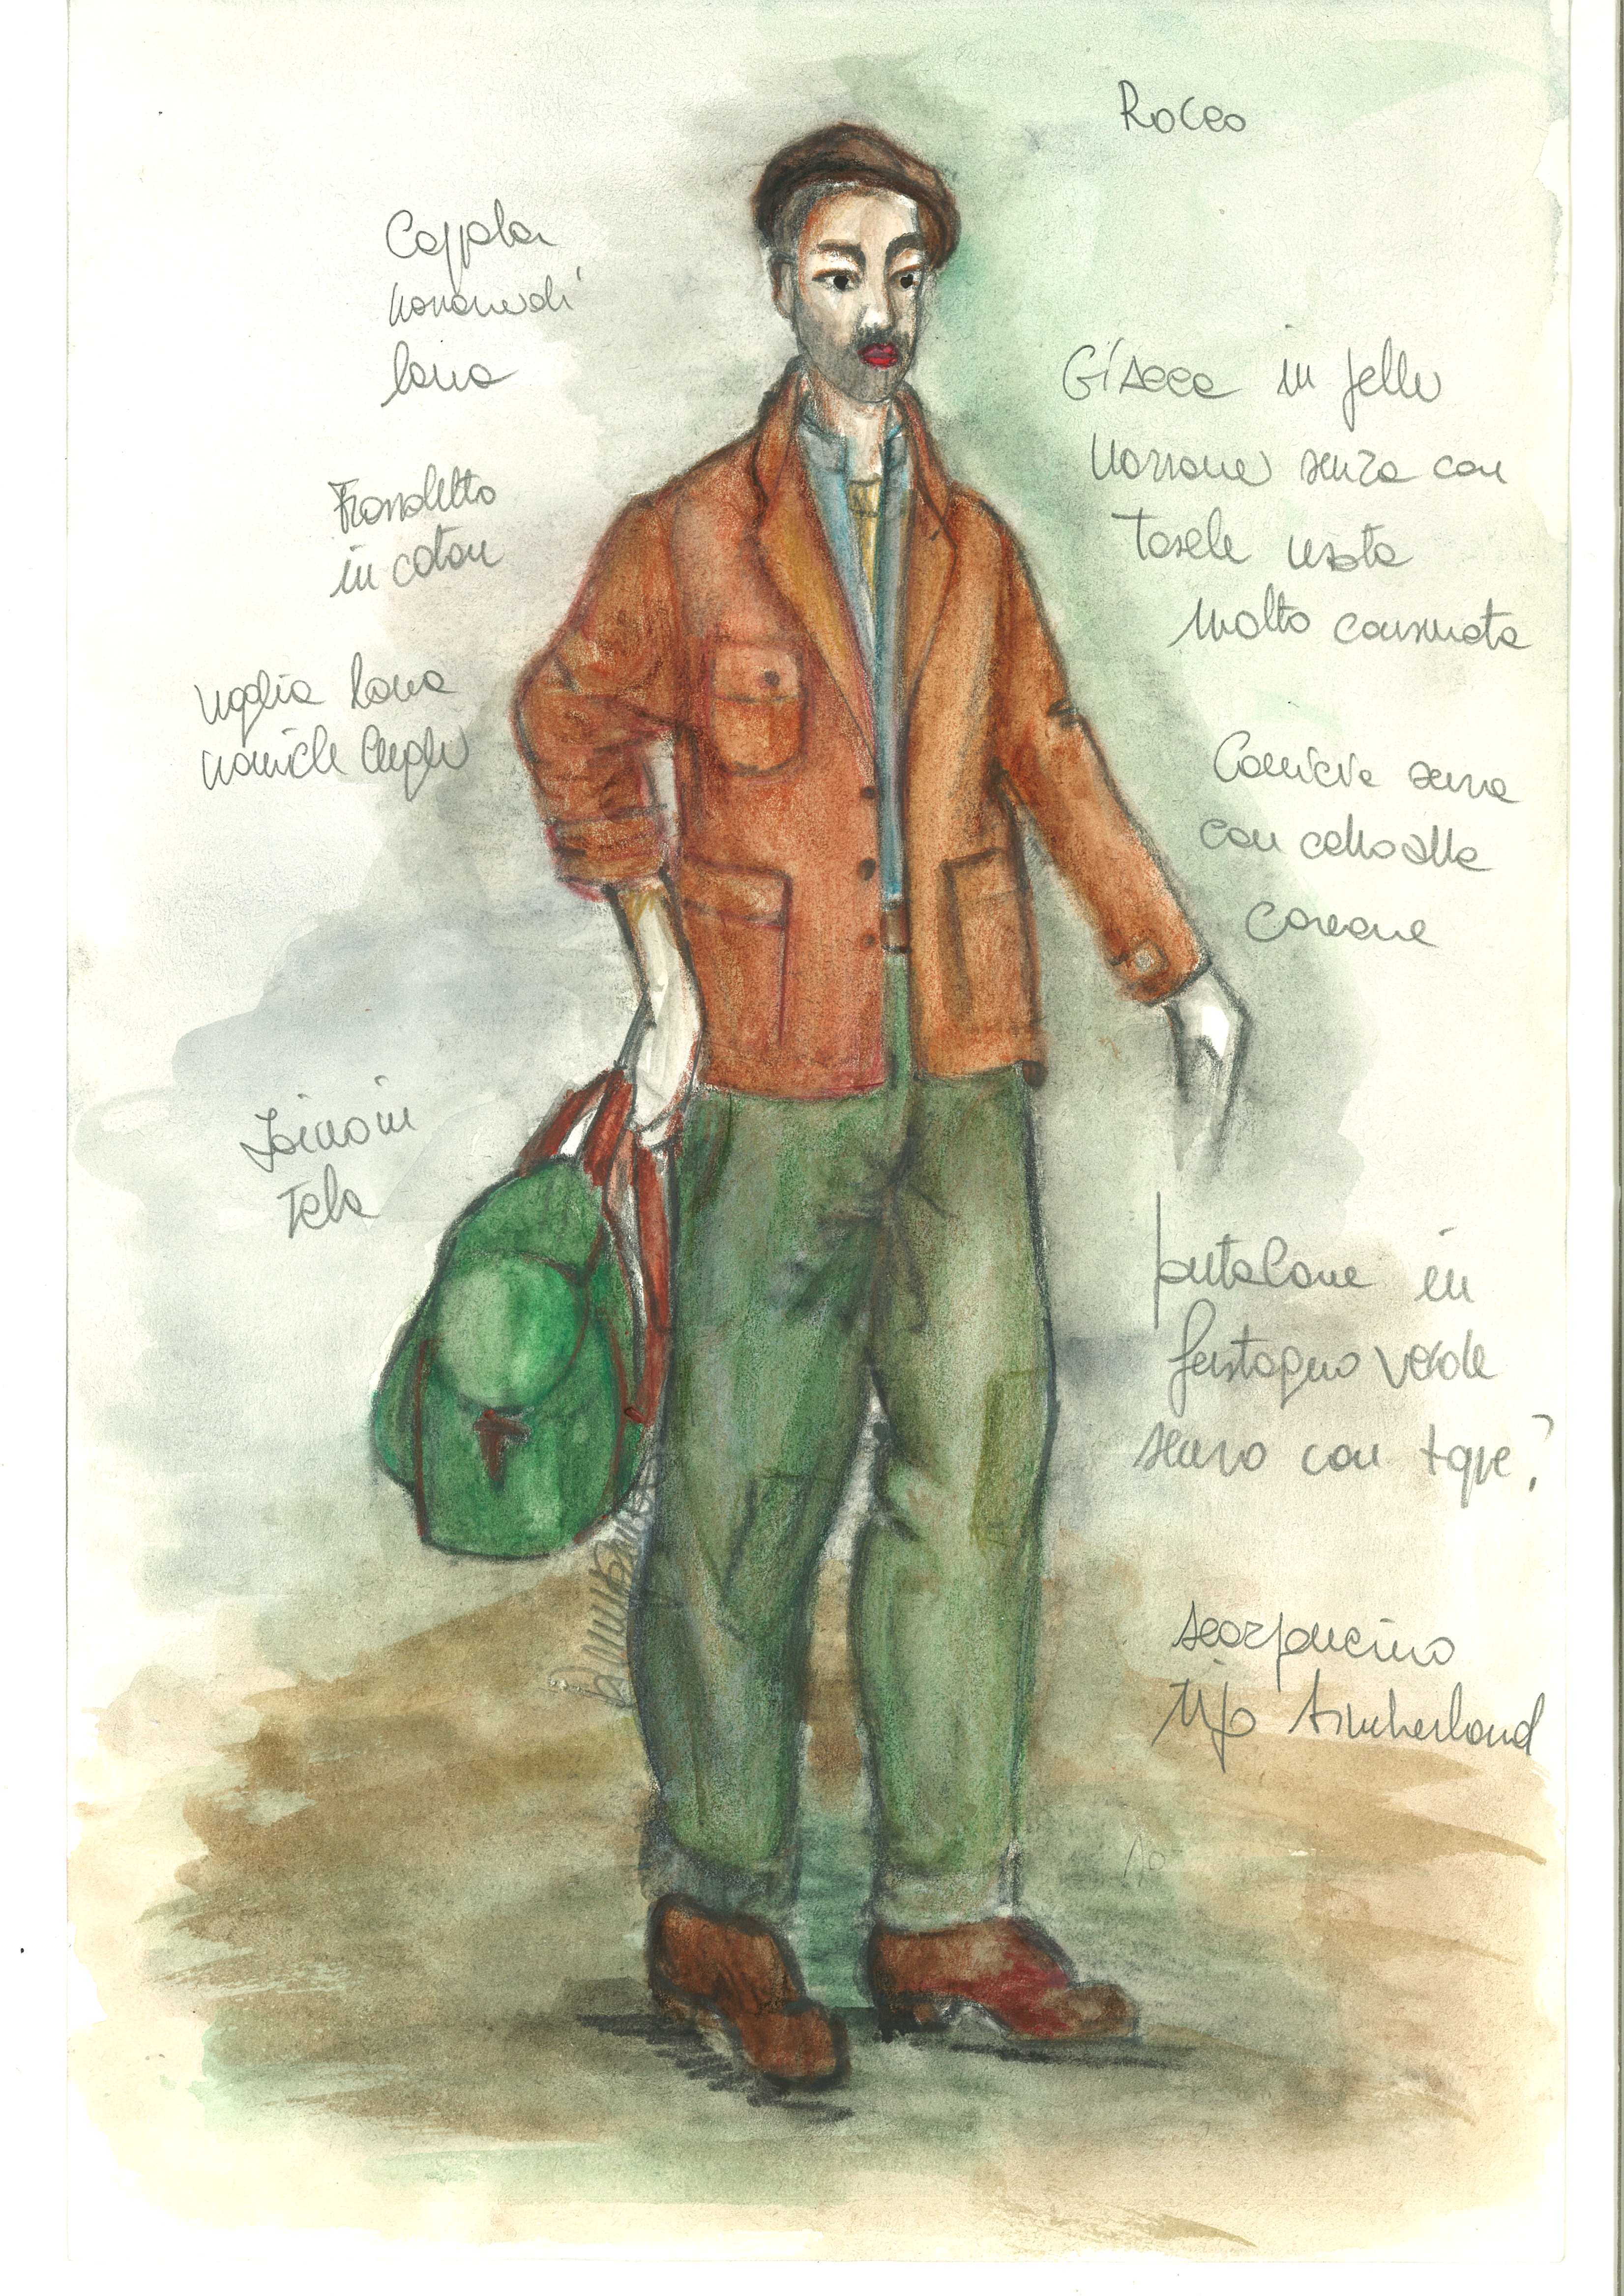 Rocco
Coppola
marrone di
lana
Giacca in pelle
marrone senza con
tasche usata
molto consumata
in cotone
maglia lana
maniche lunghe
Camicia
con collo alla
coreana
Zaino in
tela
pantalone in
fustagno verde
con
scarponcino
tipo timberland